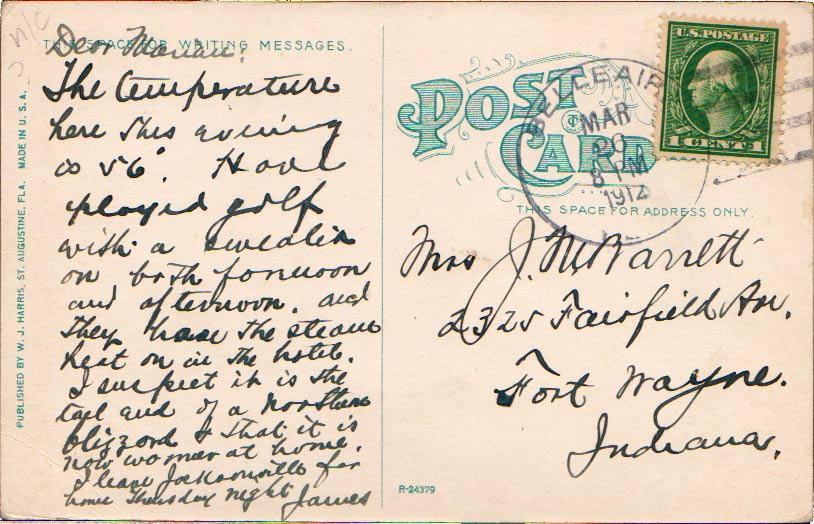 n/c
THIS SPACE FOR WRITING MESSAGES.
Dear Marian:
The temperature
here this evening
is 56°. Have
played golf
with a sweater
on both forenoon
and afternoon, and
they have the steam
heat on in the hotel.
I suspect it is the
tail end of a northern
blizzard & that it is
now warmer at home.
I leave Jacksonville for
home Thursday night
James
PUBLISHED BY W. J. HARRIS, ST. AUGUSTINE, FLA. MADE IN U. S. A.
POST
CARD
BELLEAIR
MAR
26
8 PM
1912
U.S. POSTAGE
1 CENT 1
THIS SPACE FOR ADDRESS ONLY.
Mrs J. M. Barrett
2325 Fairfield Av.
Fort Wayne.
Indiana.
R-24379